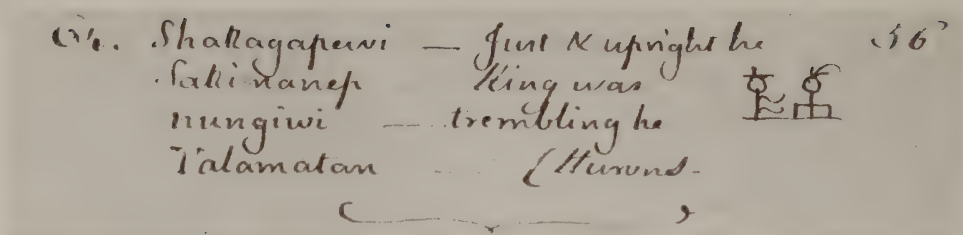 Shakagapewi — Just & upright he 56
Sakimanep King was
nungiwi — trembling he
Talamatan (Hurons-